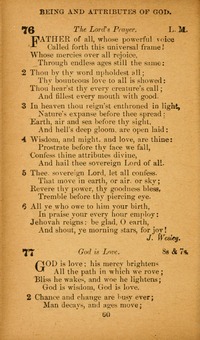 BEING AND ATTRIBUTES OF GOD.
76 The Lord's Prayer. L. M.
FATHER of all, whose powerful voice
Called forth this universal frame!
Whose mercies over all rejoice,
Through endless ages still the same:
2 Thou by thy word upholdest all;
Thy bounteous love to all is showed:
Thou hear'st thy every creature's call;
And fillest every mouth with good.
3 In heaven thou reign'st enthroned in light,
Nature's expanse before thee spread;
Earth, air and sea before thy sight,
And hell's deep gloom, are open laid:
4 Wisdom, and might, and love, are thine:
Prostrate before thy face we fall,
Confess thine attributes divine,
And hail thee sovereign Lord of all.
5 Thee, sovereign Lord, let all confess,
That move in earth, or air, or sky;
Revere thy power, thy goodness bless,
Tremble before thy piercing eye.
6 All ye who owe to him your birth,
In praise your every hour employ:
Jehovah reigns: be glad, O earth,
And shout, ye morning stars, for joy!
J. Wesley.
77 God is Love. 8s & 7s.
GOD is love; his mercy brightens
All the path in which we rove;
Bliss he wakes, and woe he lightens;
God is wisdom, God is love.
2 Chance and change are busy ever;
Man decays, and ages move;
60